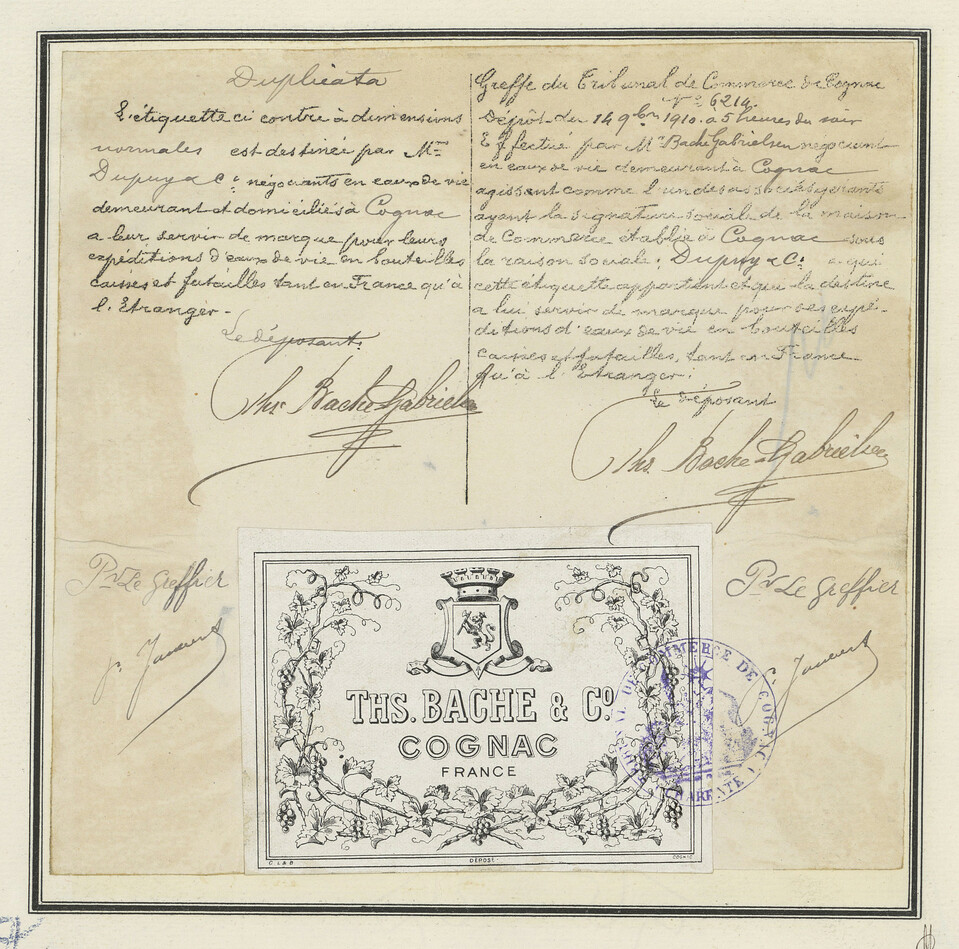 Duplicata
L'étiquette ci contre à dimensions
normales est destinée par Mrs
Dupuy & Co négociants en eaux de vie
demeurant et domiciliés à Cognac
a leur servir de marque pour leurs
expéditions d'eaux de vie en bouteilles
caisses et futailles tant en France qu'à
l'Etranger -
Le déposant.
Ths. Bache-Gabrielsen
Greffe du Tribunal de Commerce de Cognac
No 6214.
Dépôt du 14 9bre 1910. à 5 heures du soir
Effectué par Mr Bache Gabrielsen négociant
en eaux de vie demeurant à Cognac
agissant comme l'un des associés gérants
ayant la signature sociale de la maison
de Commerce établie à Cognac sous
la raison sociale: Dupuy & Co. a qui
cette étiquette appartient et qui la destine
a lui servir de marque pour ses expé-
ditions d'eaux de vie en bouteilles
caisses et futailles, tant en France
Qu'à l'Etranger.
Le déposant
Ths. Bache-Gabrielsen
Pr Le Greffier
Pr Le Greffier
THS. BACHE & CO.
COGNAC
FRANCE
DÉPOSÉ
TRIBUNAL DE COMMERCE DE COGNAC
CHARENTE